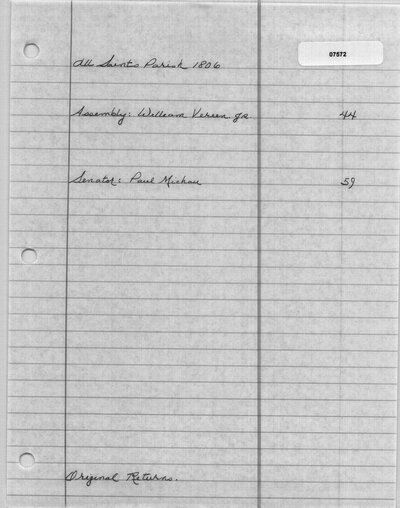 07572
All Saints Parish 1806
Assembly: William Vereen Jr. 44
Senator: Paul Michau 59
Original Returns.